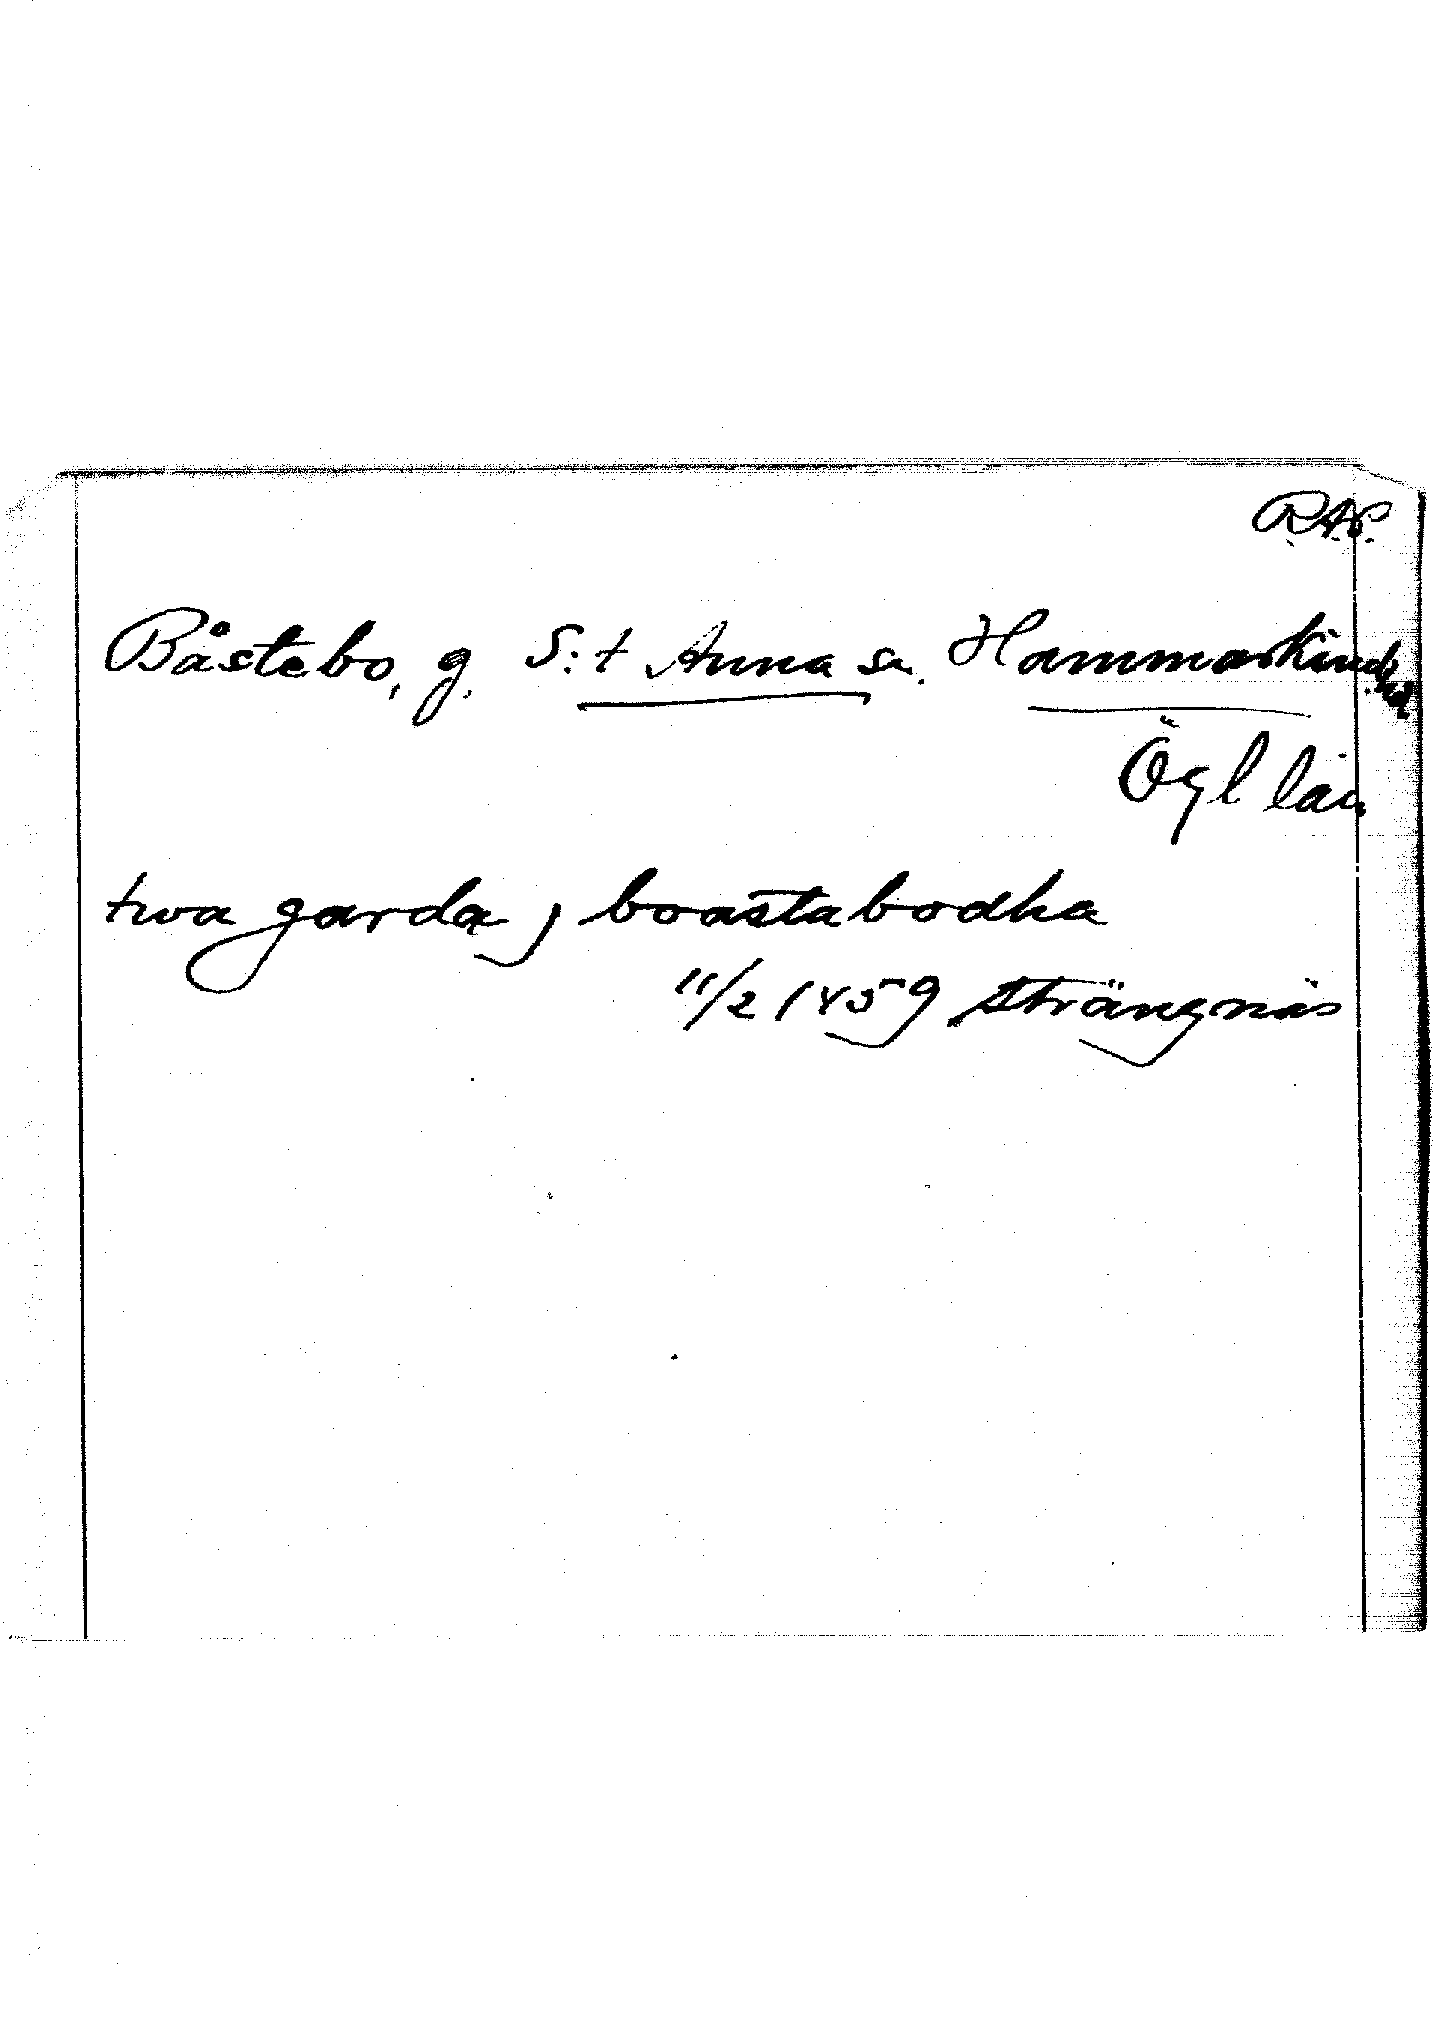 R.A.P.
Båstebo, g. S:t Anna sn. Hammarkinds hd
Ögl län
twa garda j boastabodha
11/2 1459 Strängnäs